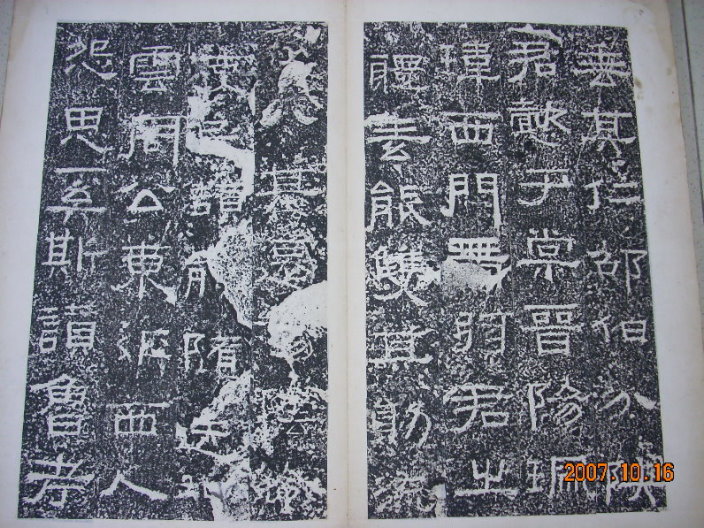 垂其仁邵伯分陝
君懿于棠晉陽珮
瑋西門帶弦君之
體素能雙其勛流
基遷蕩陰令
吏民頡頏隨送如
雲周公東征西人
怨思奚斯讚魯考
2007.10.16